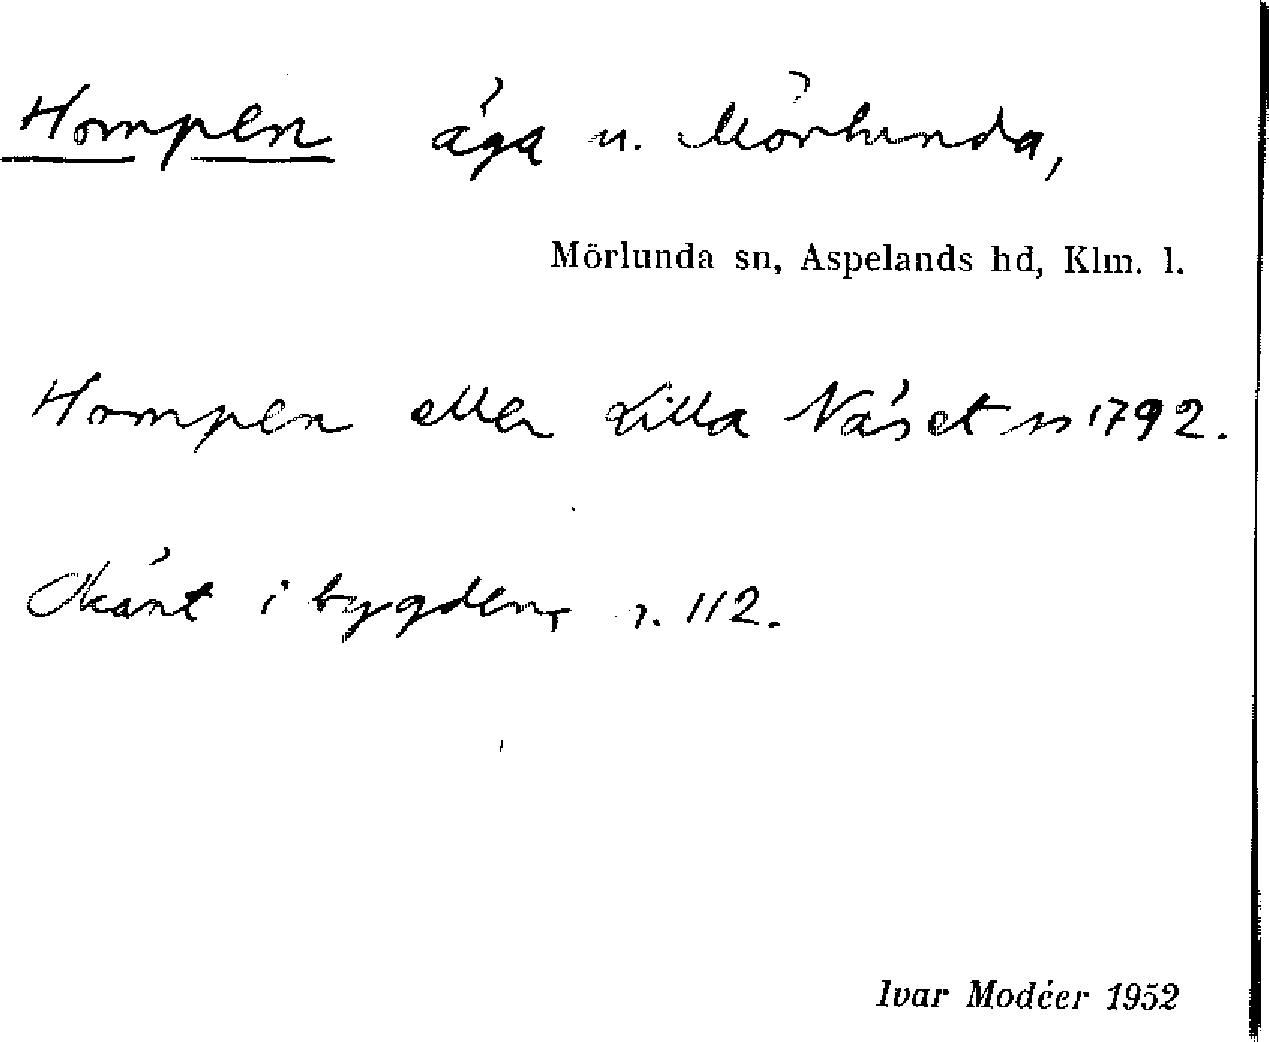 Hompen äga u. Mörlunda,
Mörlunda sn, Aspelands hd, Klm. l.
Hompen eller Lilla Näset 1792.
Okänt i bygden, s. 112.
Ivar Modéer 1952